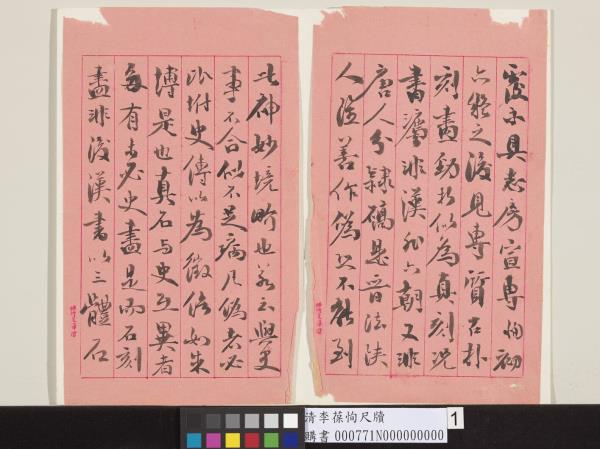 具志房宣專恂初
亦疑之後見專質古朴
刻畫勁似為真刻況
書灋非漢非六朝又非
唐人分隸碻是晉法決
人從善作偽不能到
此神妙境畍也若云與史
事不合似不足病凡偽者必
比附史傳以為徵信如朱
博是也真石與史互異者
每有未必史盡是而石刻
盡非後漢書以三體石
清李葆恂尺牘
購書 000771N000000000
1